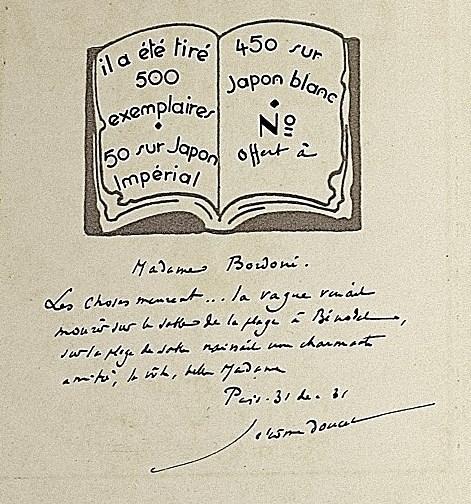 il a été tiré
500
exemplaires
50 sur Japon
Impérial
450 sur
Japon blanc
No
offert à
Madame Bordoni.
Les choses meurent... la vague venait
mourir sur le sable de la plage à Bénodet,
sur la plage de sable naissait une charmante
amitié, la vôtre, belle Madame
Paris. 31 de. 31
Jérôme Doucet